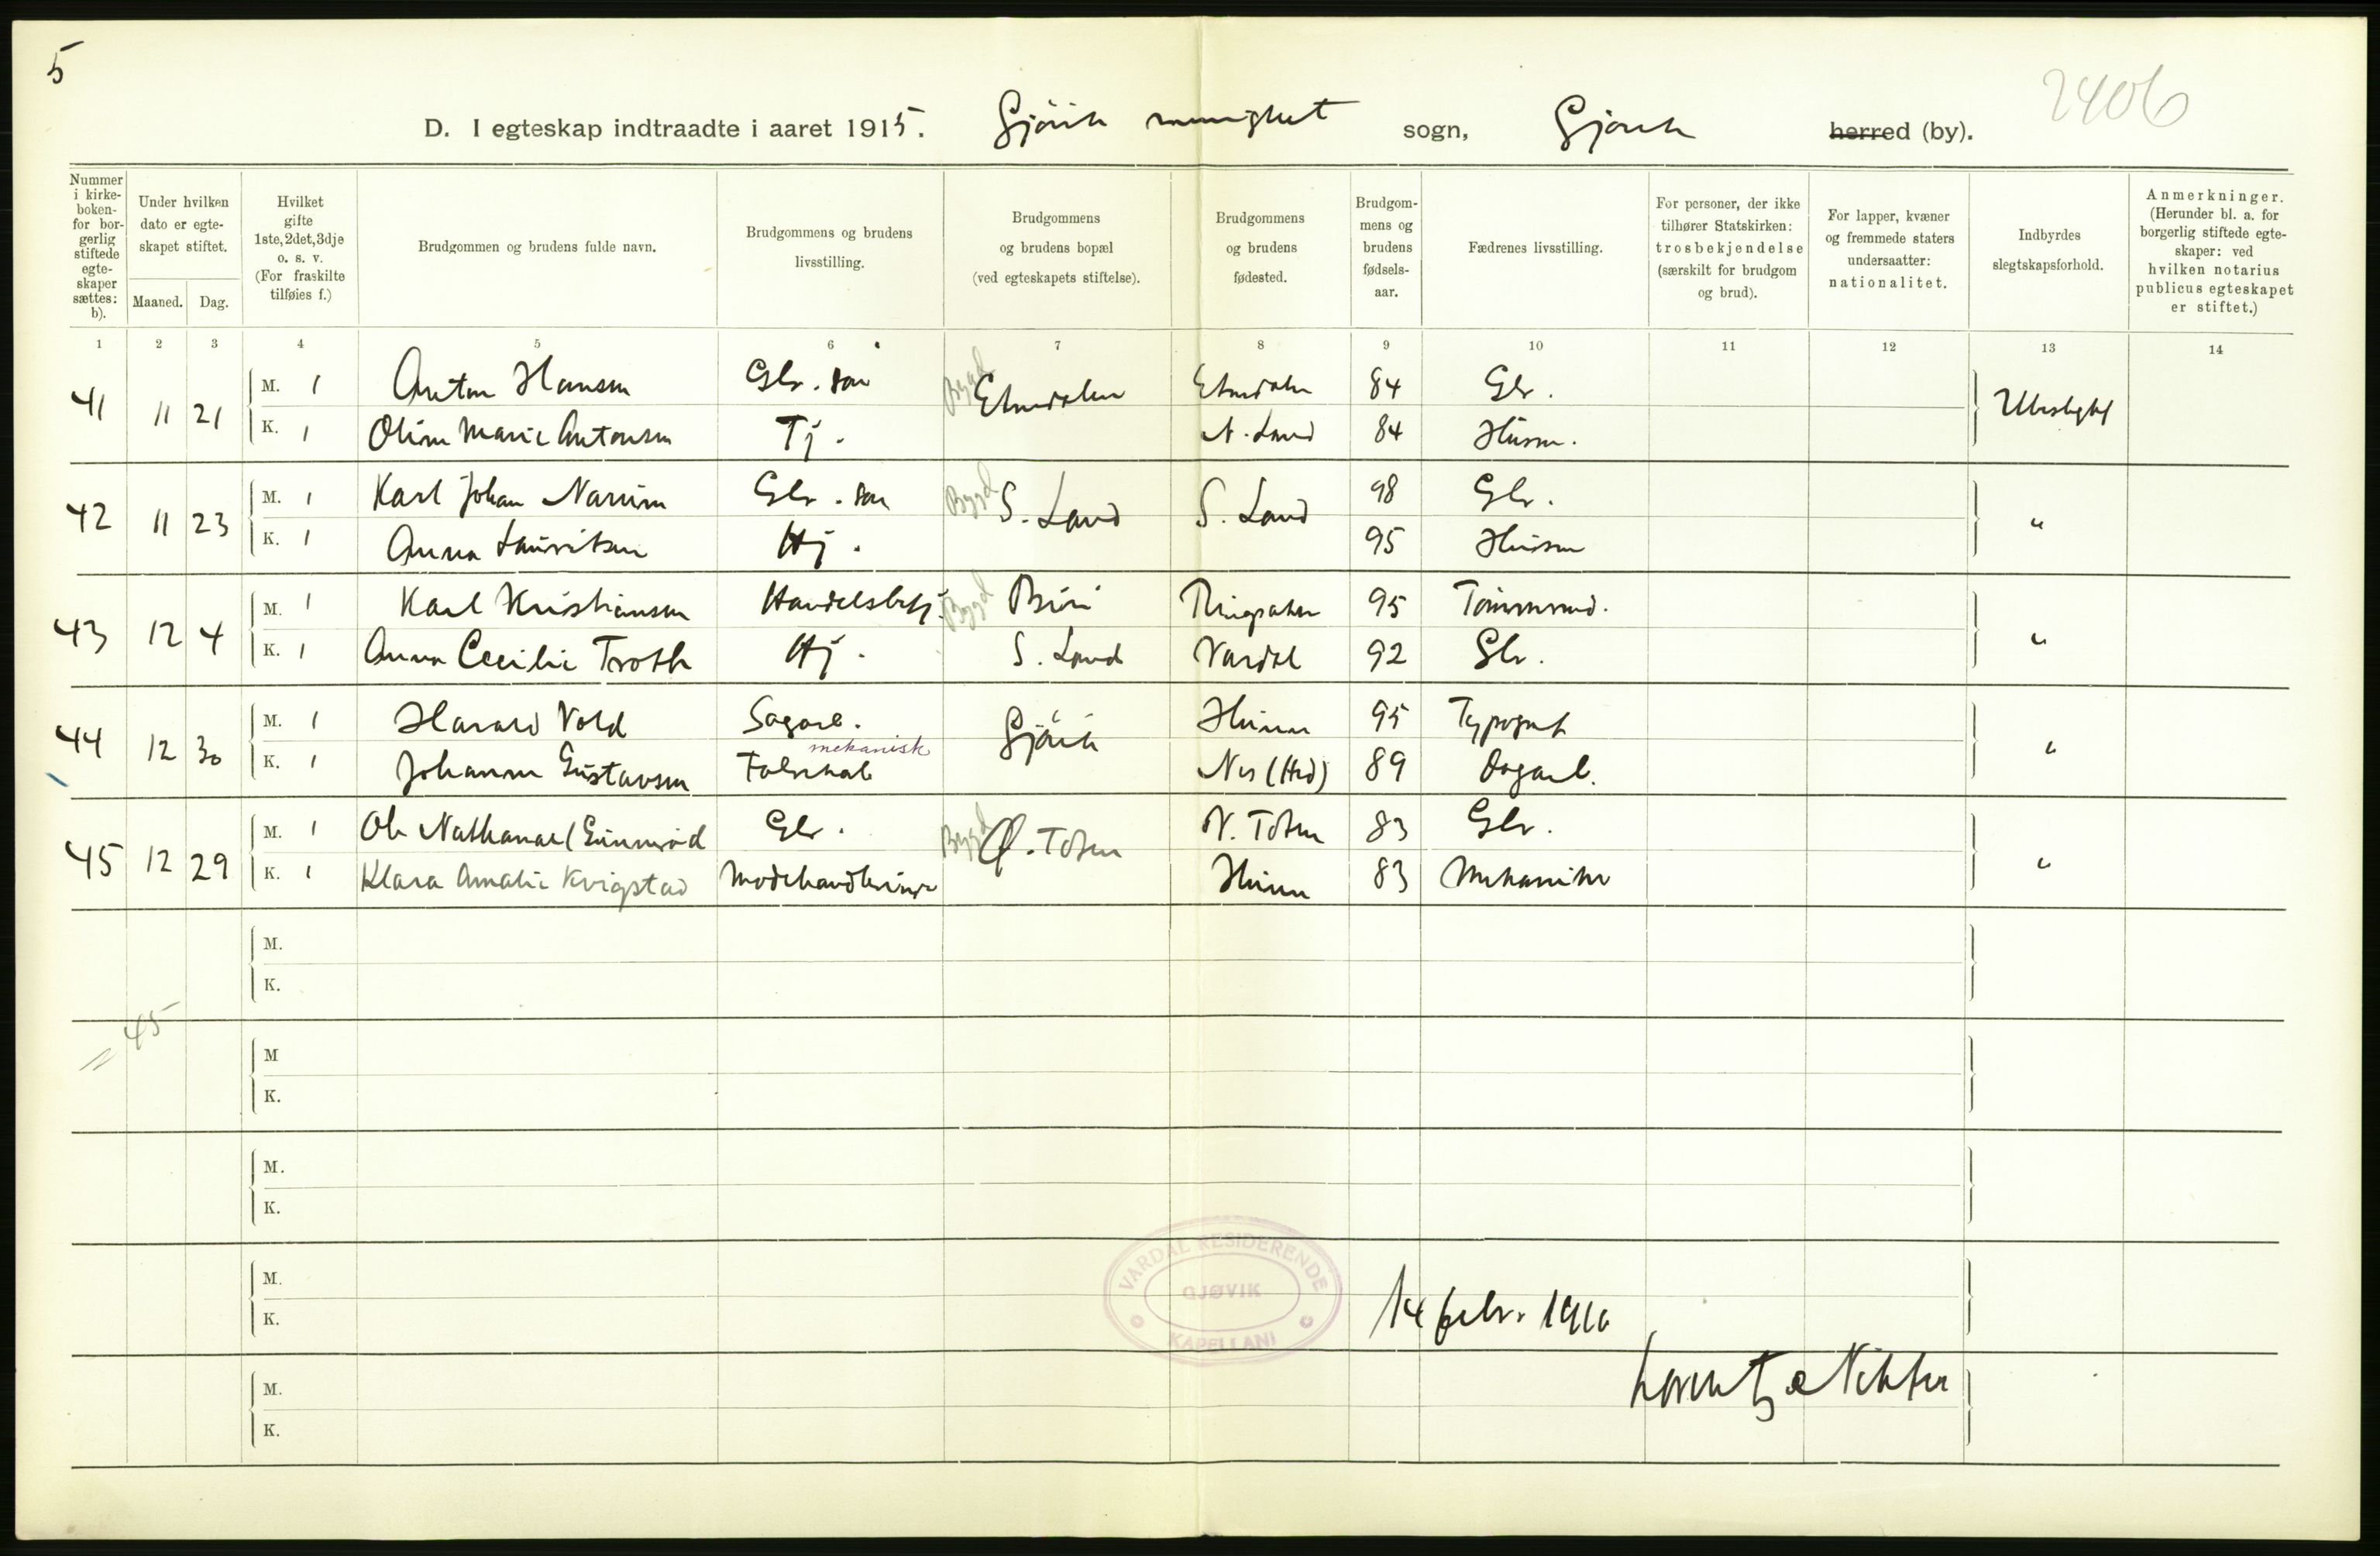 5
2406
D. I egteskap indtraadte i aaret 1915. Gjövik menighet sogn, Gjövik herred (by).
Nummer i kirkeboken- for borgerlig stiftede egteskaper sættes: b).
Under hvilken dato er egteskapet stiftet.
Maaned. Dag.
Hvilket gifte 1ste, 2det, 3dje o. s. v. (For fraskilte tilføies f.)
Brudgommen og brudens fulde navn.
Brudgommens og brudens livsstilling.
Brudgommens og brudens bopæl (ved egteskapets stiftelse).
Brudgommens og brudens fødested.
Brudgommens og brudens fødselsaar.
Fædrenes livsstilling.
For personer, der ikke tilhører Statskirken: trosbekjendelse (særskilt for brudgom og brud).
For lapper, kvæner og fremmede staters undersaatter: nationalitet.
Indbyrdes slegtskapsforhold.
Anmerkninger. (Herunder bl. a. for borgerlig stiftede egteskaper: ved hvilken notarius publicus egteskapet er stiftet.)
1 2 3 4 5 6 7 8 9 10 11 12 13 14
41 11 21 M. 1 Anton Hansen Gbr. søn Bygd Etnedalen Etnedalen 84 Gbr. Ubeslegtet
K. 1 Oline Marie Antonsen Tj. N. Land 84 Husm.
42 11 23 M. 1 Karl Johan Narum Gbr. søn Bygd S. Land S. Land 98 Gbr. "
K. 1 Anna Lauritsen Hj. 95 Husm
43 12 4 M. 1 Karl Kristiansen Handelsbetj. Bygd Biri Ringsaker 95 Tømmerm. "
K. 1 Anna Cecilie Troth Hj. S. Land Vardal 92 Gbr.
44 12 30 M. 1 Harald Vold Sagarb. Gjövik Hunn 95 Typograf "
K. 1 Johanne Gustavsen mekanisk Nes (Hed) 89 Dagarb.
45 12 29 M. 1 Ole Nathanael Gunnerød Gbr. Bygd Ø. Toten V. Toten 83 Gbr. "
K. 1 Klara Amalie Kvigstad Modehandlerinde Hunn 83 Mekaniker
M.
K.
= 45
M
K.
M.
K.
M.
K.
VARDAL RESIDERENDE
GJØVIK
KAPELLANI
14 febr. 1916
M.
K.